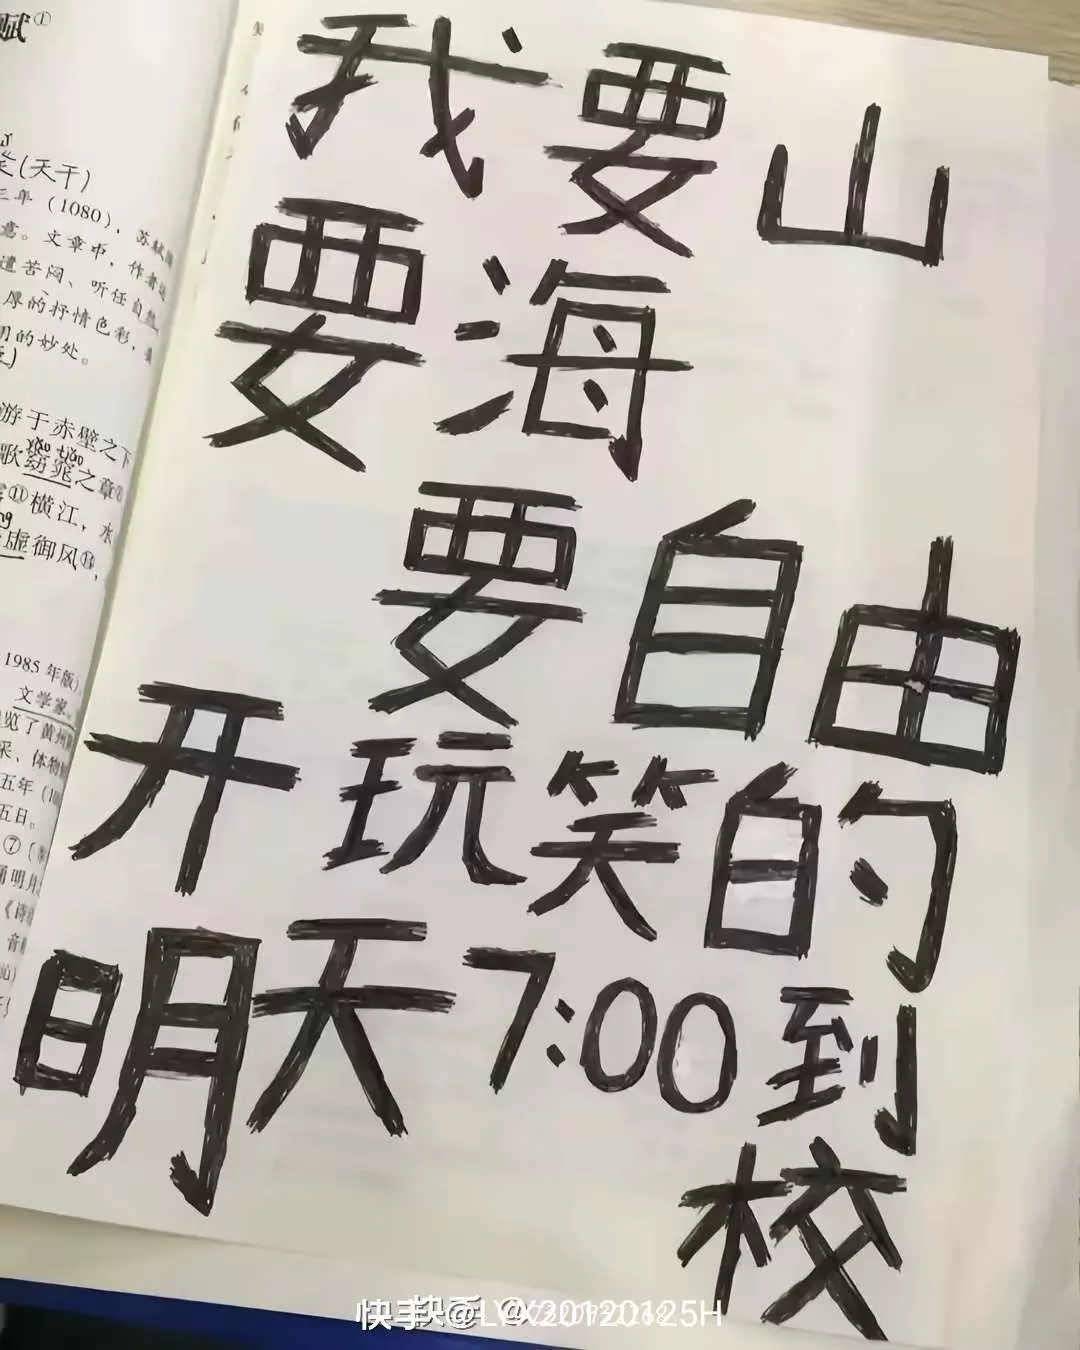 赋①
(天干)
三年（1080），苏轼
意。文章中，作者
遣苦闷、听任自然
厚的抒情色彩，
的妙处。
游于赤壁之下
yǎo tiǎo
歌窈窕之章
⑪横江，水
虚御风⑭，
1985年版）
文学家。
览了黄州
采、体物
五年
五日。
⑦
诵明月
《诗
音
我要山
要海
要自由
开玩笑的
明天7:00到
校
快手 @LYX20120125H